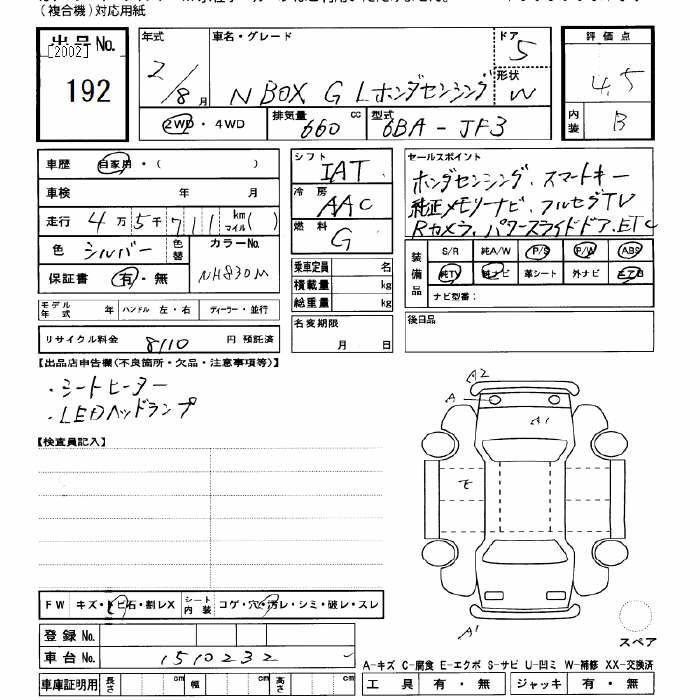 (複合機)対応用紙
出品No.
[2002]
192
年式
2/8月
車名・グレード
N BOX G Lホンダセンシング
ドア
5
形状
W
評価点
4.5
内装
B
2WD・4WD
排気量
660 cc
型式
6BA-JF3
車歴 自家用・( )
車検 年 月
走行 4万5千711 km マイル( )
色 シルバー 色替
カラーNo.
NH830M
保証書 有・無
モデル年式 年 ハンドル 左・右 ディーラー・並行
リサイクル料金 8110 円 預託済
シフト
IAT
冷房
AAC
燃料
G
乗車定員 名
積載量 kg
総重量 kg
名変期限
月 日
セールスポイント
ホンダセンシング、スマートキー
純正メモリーナビ、フルセグTV
Rカメラ、パワースライドドア、ETC
装備品
S/R 純A/W P/S P/W ABS
純TV 純ナビ 革シート 外ナビ エアB
ナビ型番:
後日品
【出品店申告欄(不良箇所・欠品・注意事項等)】
・シートヒーター
・LEDヘッドランプ
【検査員記入】
A2
A
A1
E
A1
スペア
FW キズ・トビ石・割レX シート内装 コゲ・穴・汚レ・シミ・破レ・スレ
登録No.
車台No. 1510232
車庫証明用 長さ cm 幅 cm 高さ cm
A-キズ C-腐食 E-エクボ S-サビ U-凹ミ W-補修 XX-交換済
工具 有・無 ジャッキ 有・無